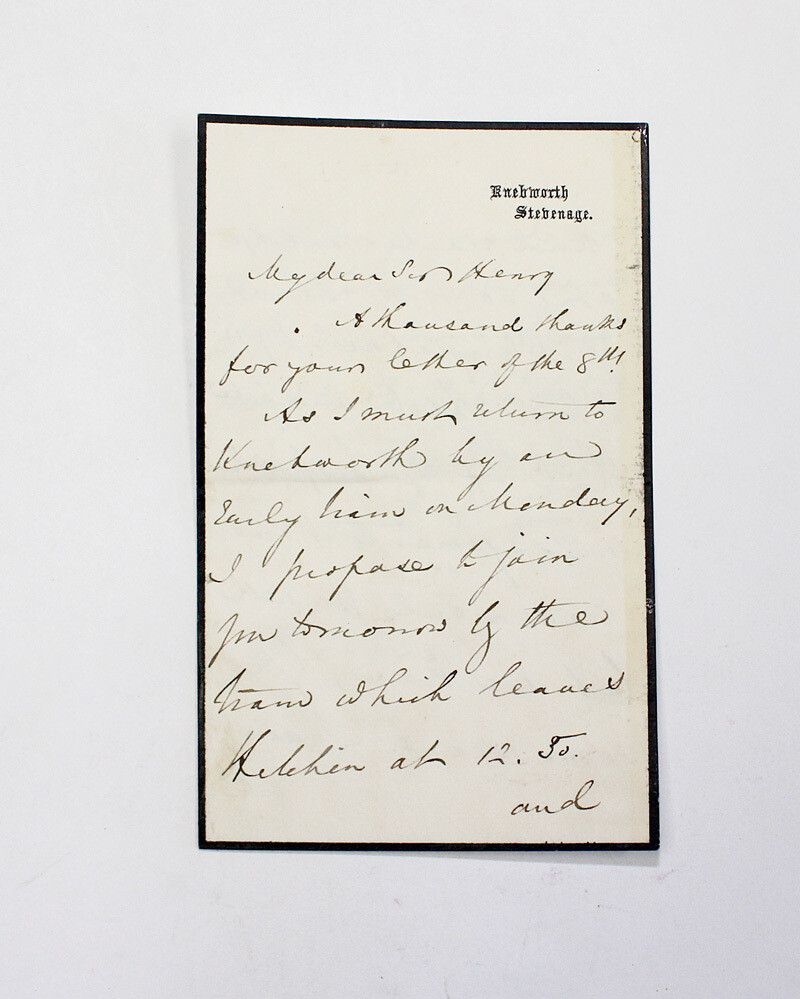 Knebworth
Stevenage.
My dear Sir Henry
A thousand thanks
for your letter of the 8th.
As I must return to
Knebworth by an
Early train on Monday,
I propose to join
you tomorrow by the
train which leaves
Hitchin at 12.
and